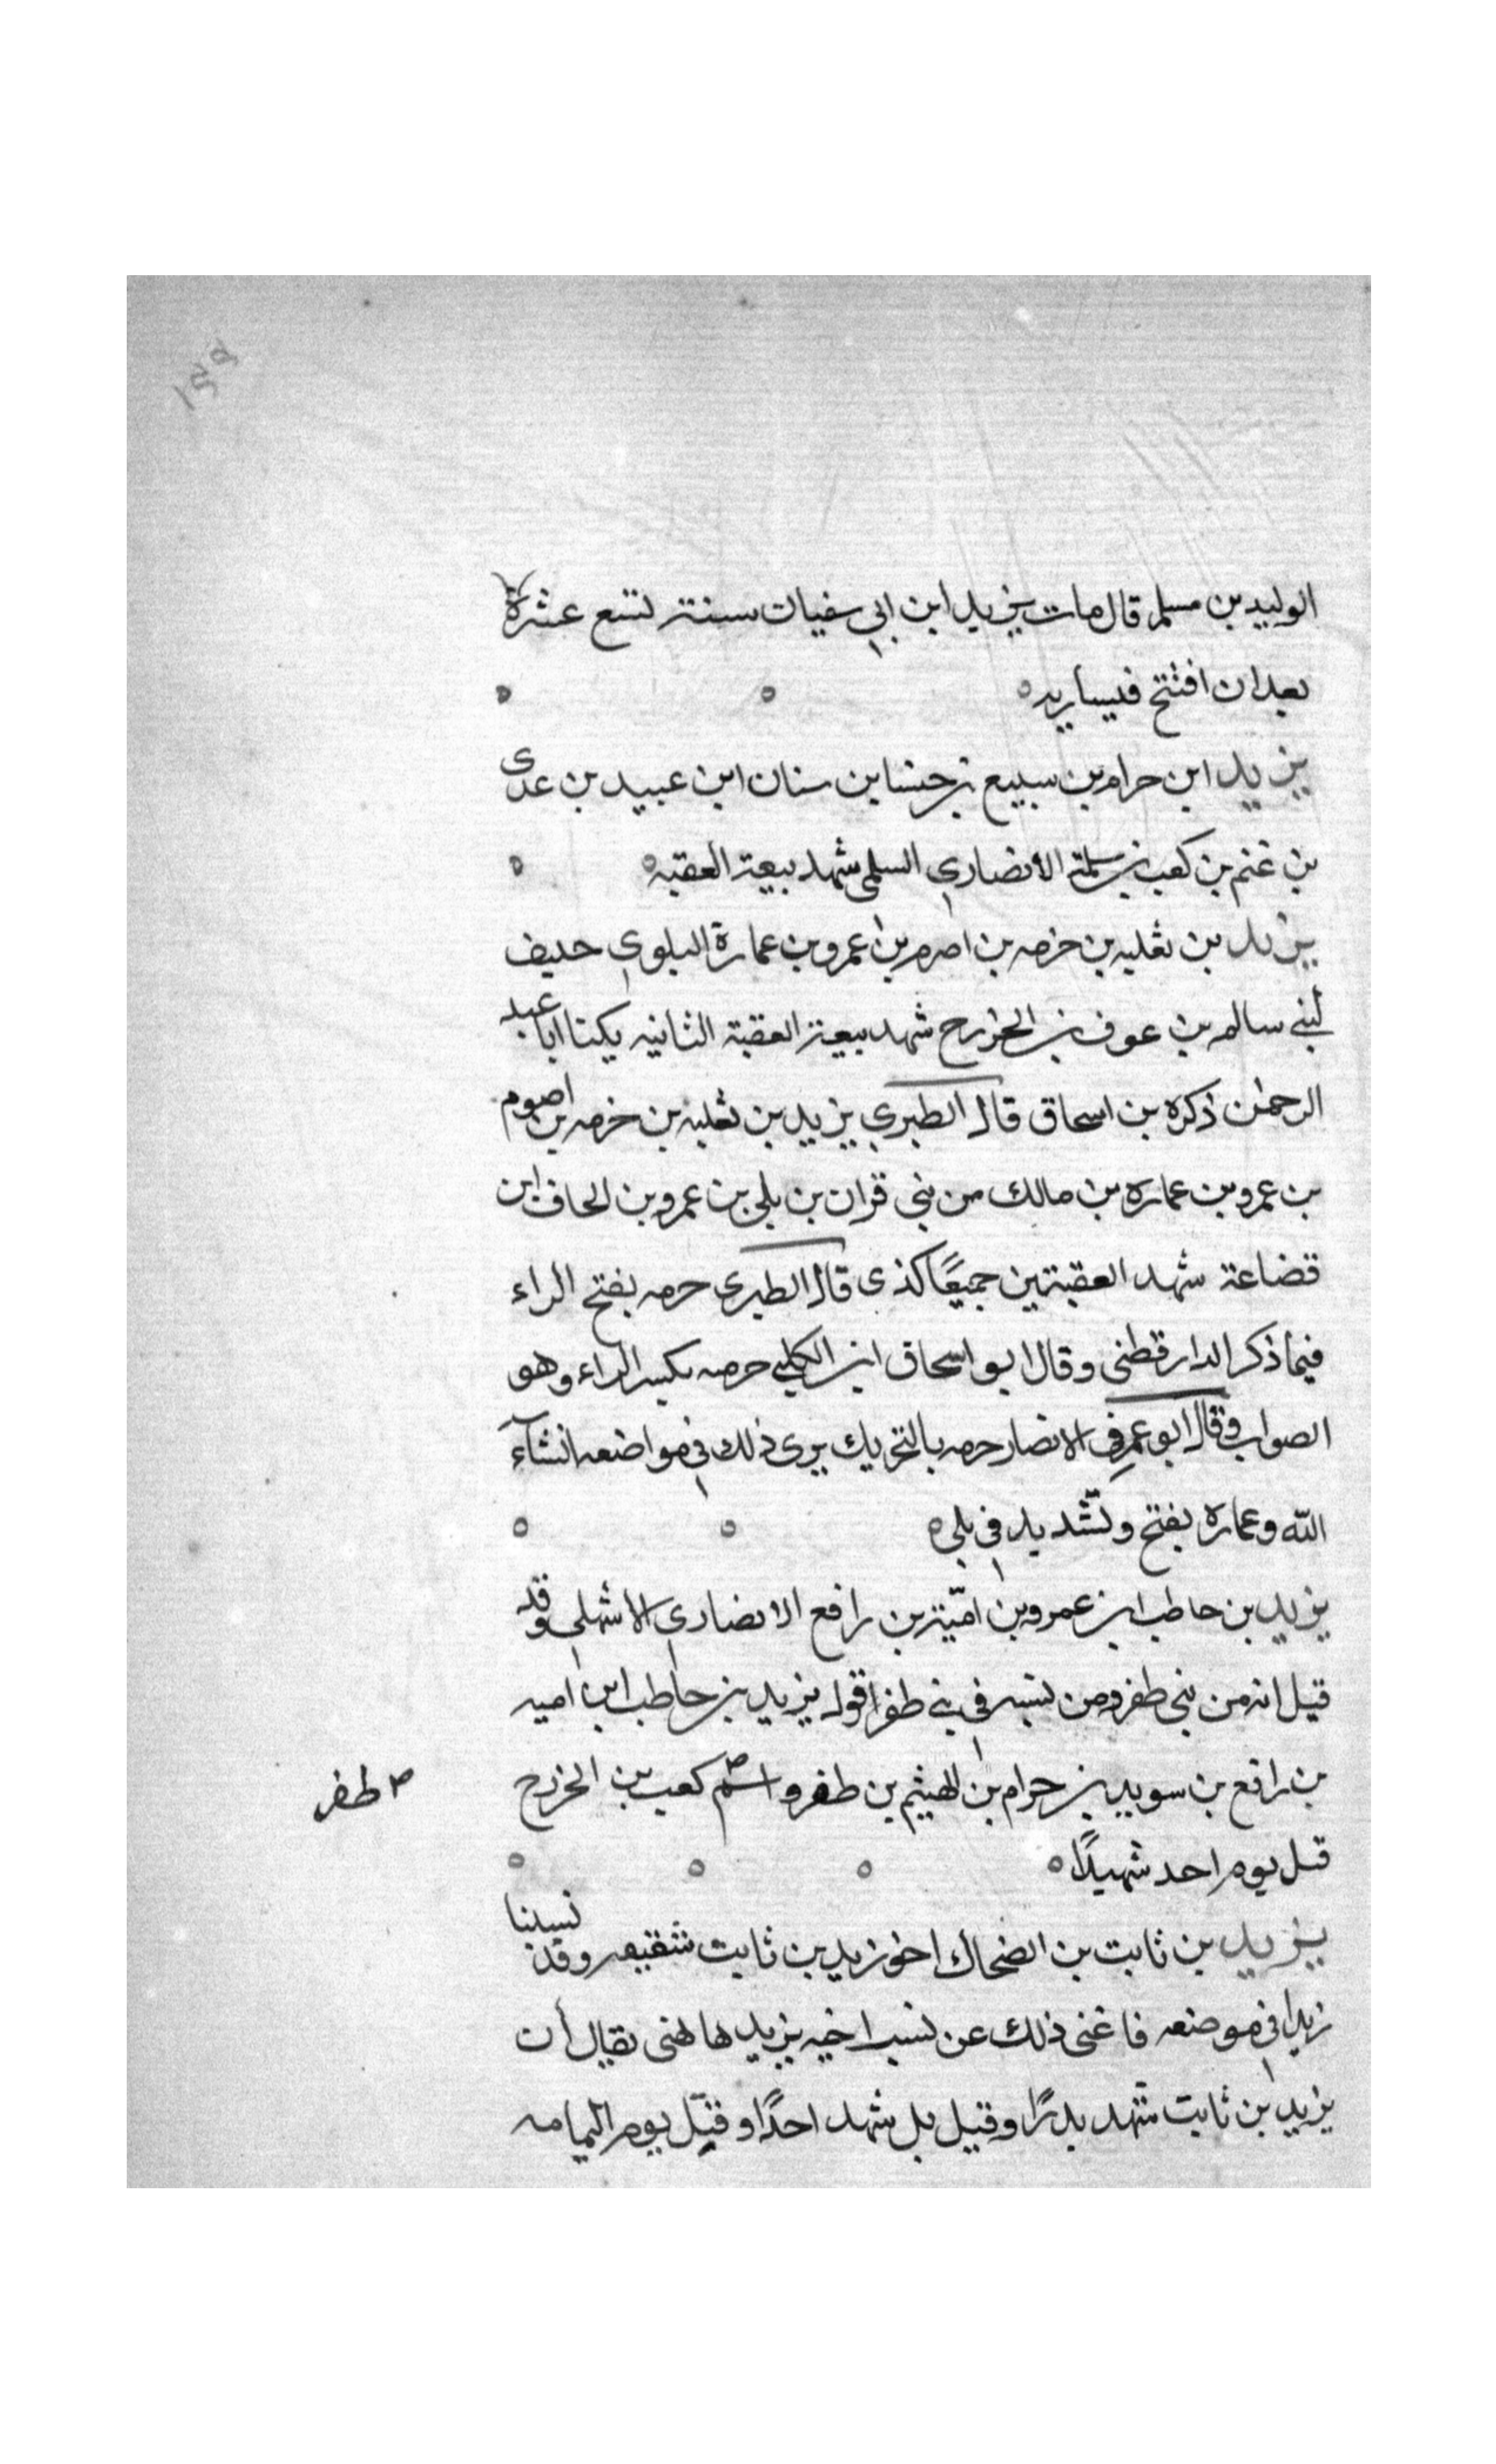 الوليد بن مسلم قال مات يزيد ابن ابي سفيان سنة تسع عشرة
بعد ان افتتح قيساريه
يزيد ابن حرام بن سبيع بن خنسا بن سنان ابن عبيد بن عدى
بن غنم بن كعب بن سلمة الانصاري السلمى شهد بيعة العقبه
يزيد بن ثعلبه بن خزمه بن اصرم بن عمرو بن عمارة البلوي حليف
لبني سالم بن عوف بن الخزرج شهد بيعة العقبة الثانيه يكنا ابا عبد
الرحمن ذكره بن اسحاق قال الطبري يزيد بن ثعلبه بن خزمه بن اصرم
بن عمرو بن عماره بن مالك من بني قران بن بلي بن عمرو بن الحاف ابن
قضاعة شهد العقبتين جميعًا كذى قال الطبرى خزمه بفتح الزاء
فيما ذكر الدارقطنى وقال ابو اسحاق ابن الكلبي خزمه بكسر الزاء وهو
الصواب وقال ابو عمر في الانصار حزمه بالتحريك يرى ذلك في مواضعه انشآء
الله وعماره بفتح وتشديد في بلي
يزيد بن حاطب ابن عمرو بن اميّة بن رافع الانصاري الاشهلي وقد
قيل انه من بني ظفر ومن نسبه في بني ظفر اقوله يزيد بن حاطب ابن اميه
بن رافع بن سويد بن حرام بن الهيثم بن ظفر واسم كعب بن الخزرج
ظفر
قتل يوم احد شهيدًا
يزيد بن ثابت بن الضحاك اخو زيد بن ثابت شقيقه وقد نسبنا
زيدا في موضعه فاغنى ذلك عن نسب اخيه يزيد هاهنى يقال ان
يزيد بن ثابت شهد بدرًا وقيل بل شهد احدًا وقتل يوم اليمامه